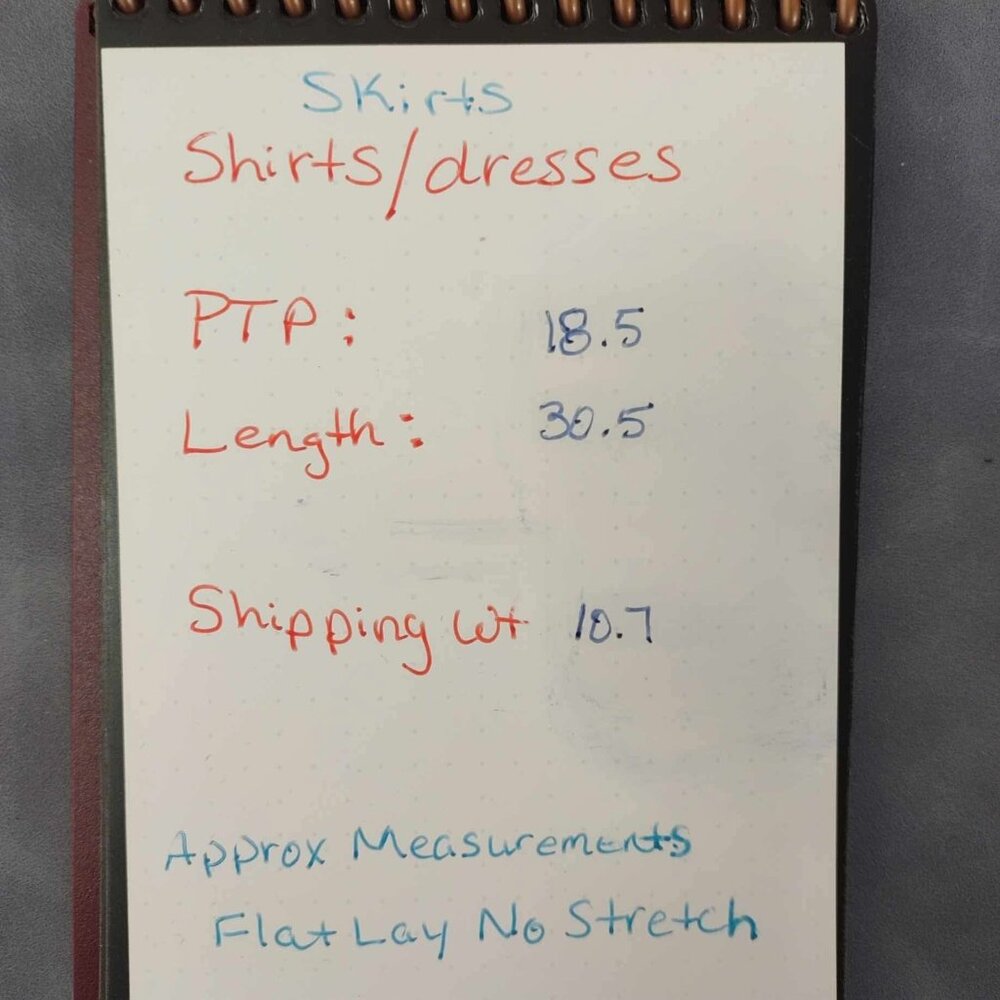 SKirts
Shirts/dresses
PTP: 18.5
Length: 30.5
Shipping Wt 10.7
Approx Measurements
Flat Lay No Stretch